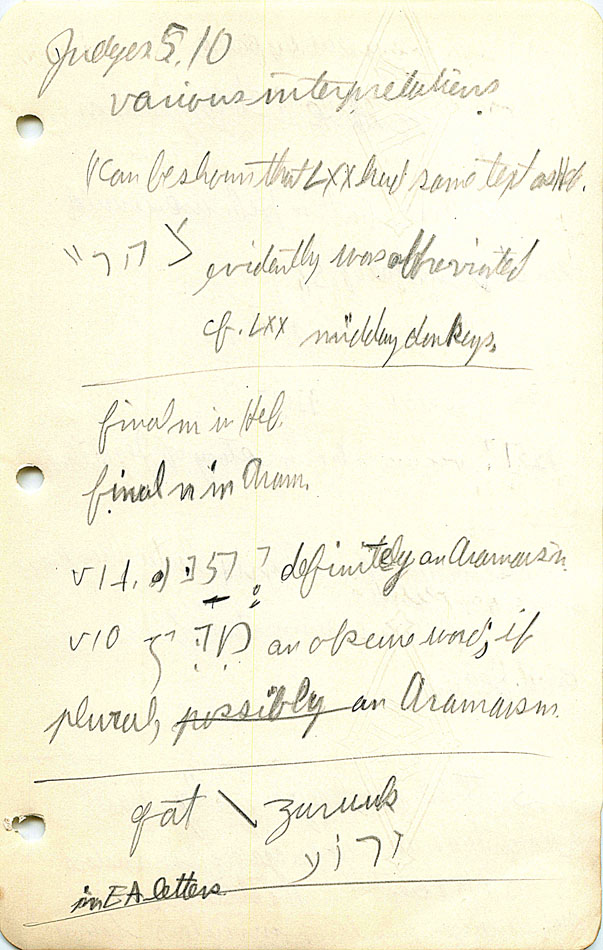 Judges 5.10
various interpretations
(can be shown that LXX had same text as Heb.
צהר״ evidently was abbreviated
cf. LXX midday donkeys.
final m in Heb.
final n in Aram.
v 14. definitely an Aramaism.
v 10 מִדִּין an obscure word; if
plural, possibly an Aramaism.
qat \ zuruuh
זרוע
in EA letters